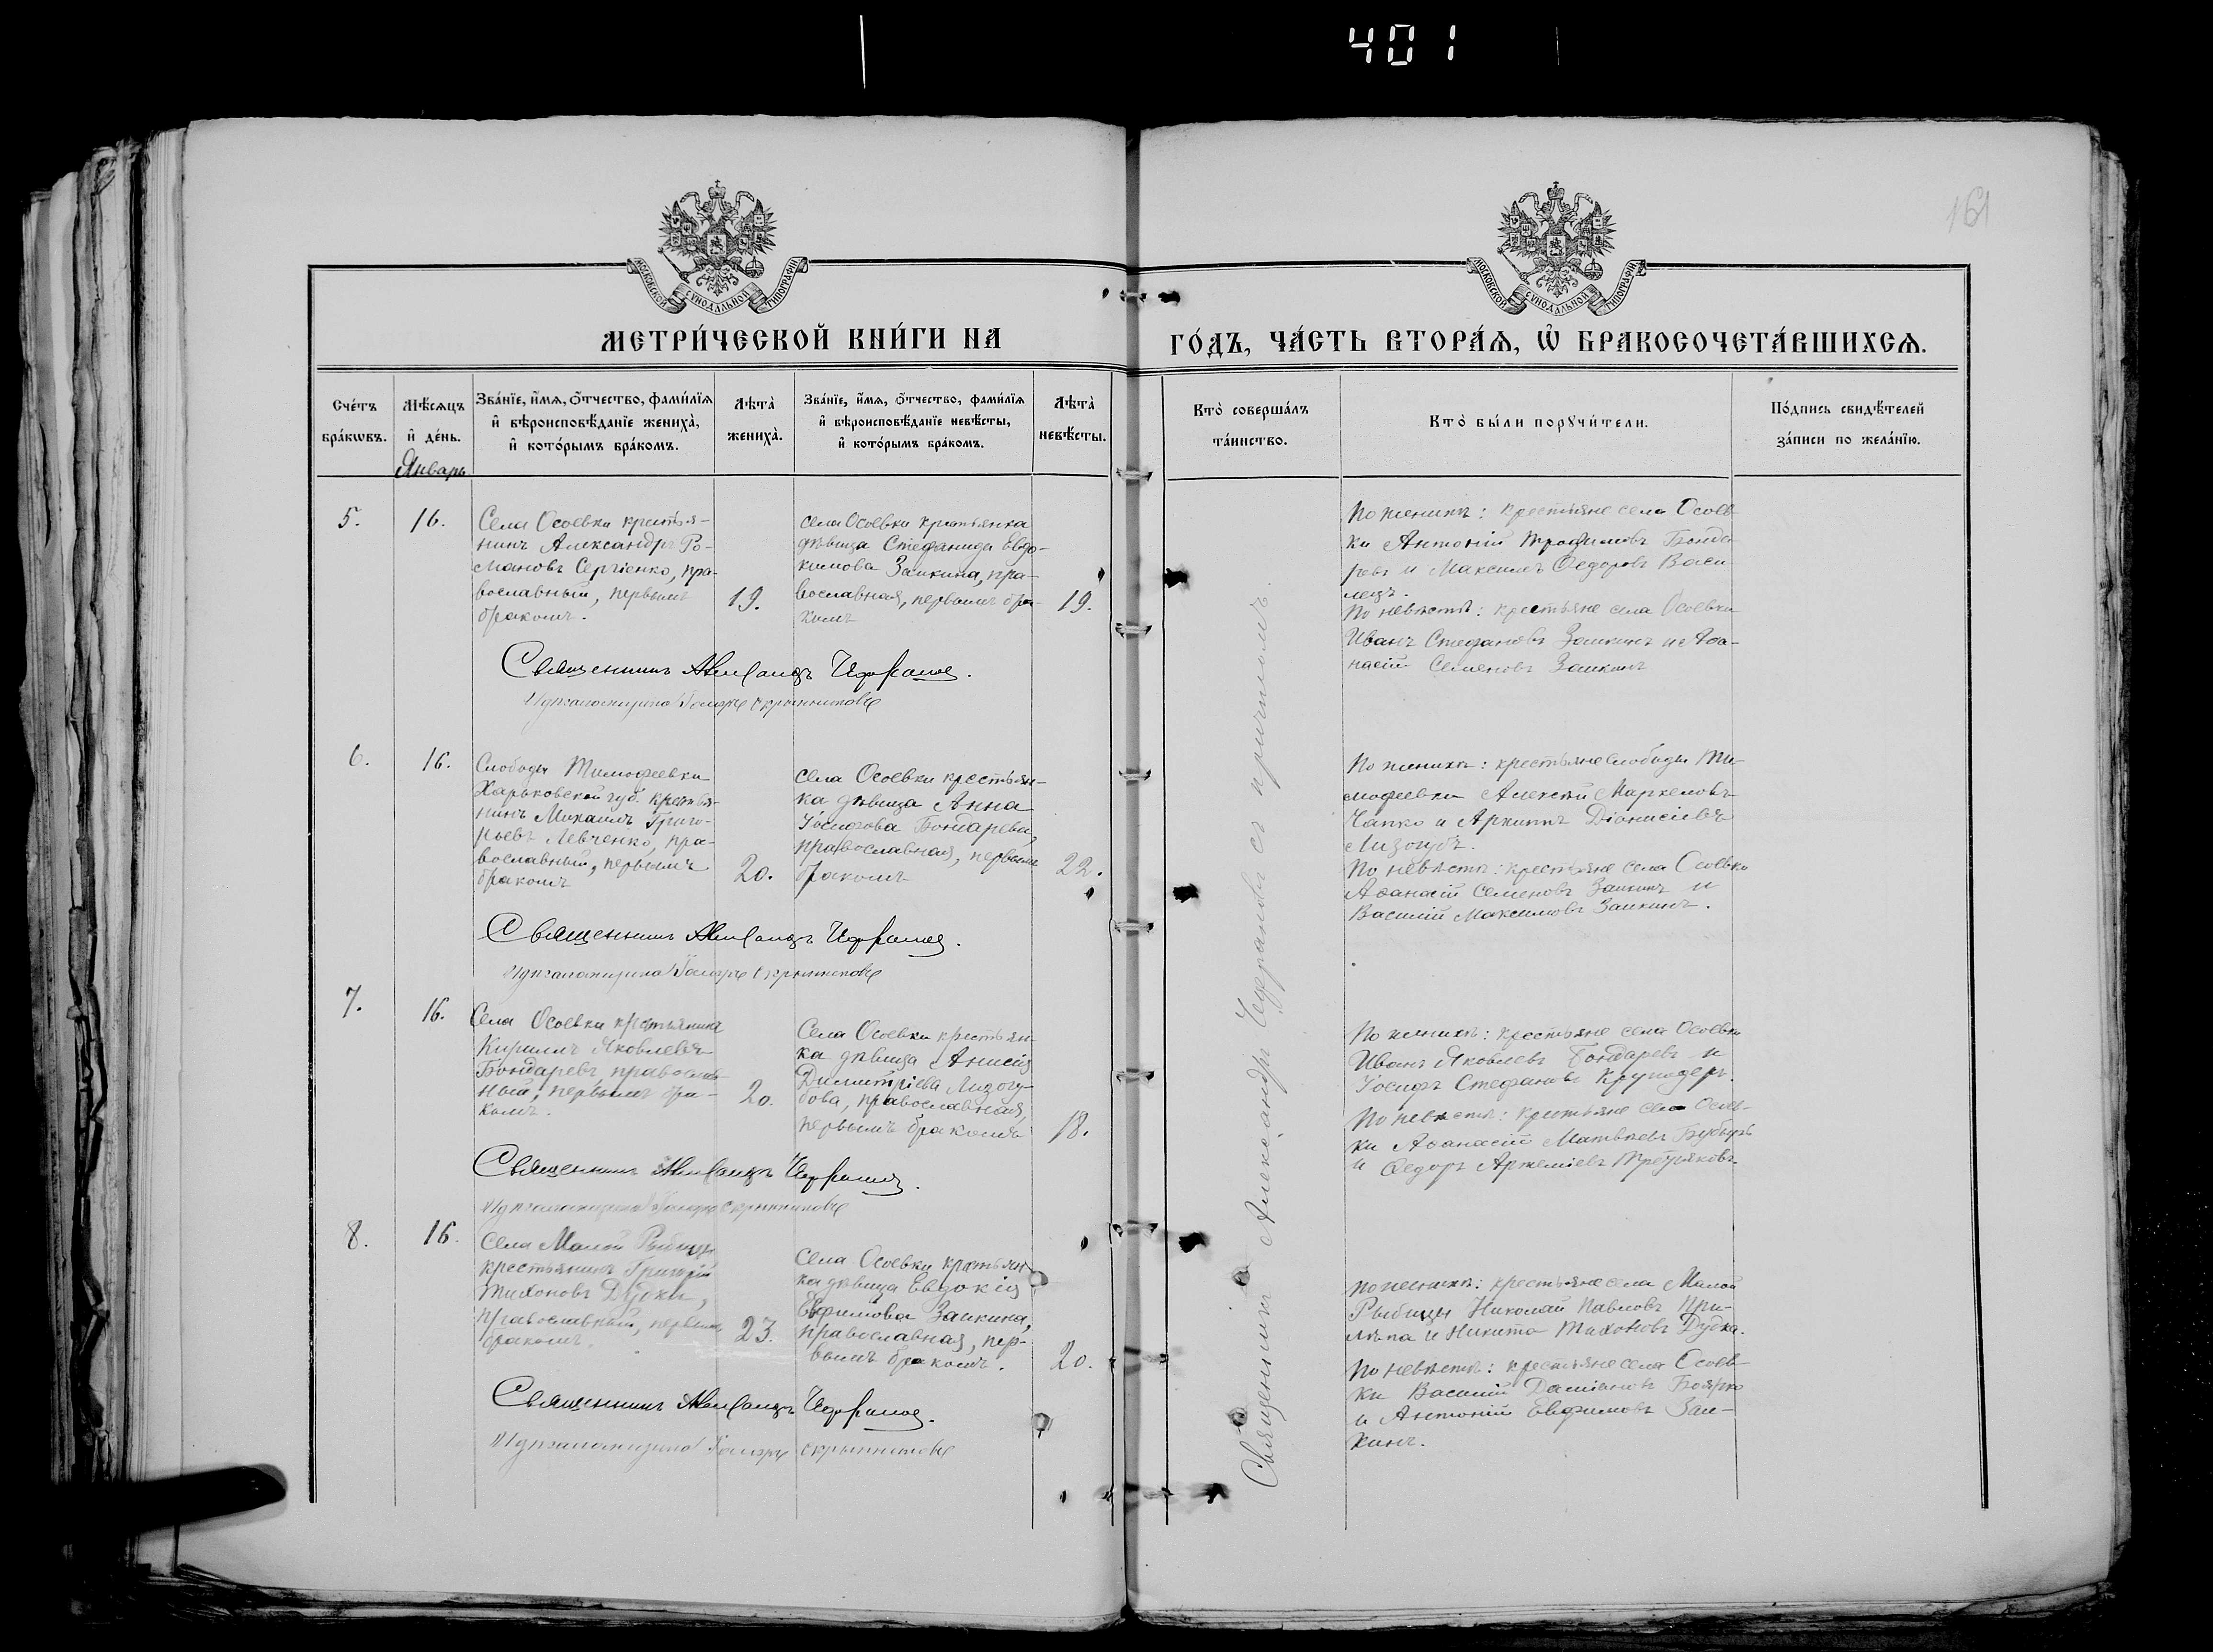 401
161
МОСКОВСКОЙ СѴНОДАЛЬНОЙ ТИПОГРАФІИ
МОСКОВСКОЙ СѴНОДАЛЬНОЙ ТИПОГРАФІИ
МЕТРИ́ЧЕСКОЙ КНИ́ГИ НА
ГО́ДЪ, ЧА́СТЬ ВТОРА́Ѧ, Ѡ҆ БРАКОСОЧЕТА́ВШИХСѦ.
Сче́тъ
бра́кѡвъ.
Мѣ́сѧцъ
и҆ де́нь.
Январь
Зва́нїе, и҆́мѧ, ѻ҆́тчество, фами́лїѧ
и҆ вѣроисповѣ́данїе жениха̀,
и҆ кото́рымъ бра́комъ.
Лѣта̀
жениха̀.
Зва́нїе, и҆́мѧ, ѻ҆́тчество, фами́лїѧ
и҆ вѣроисповѣ́данїе невѣ́сты,
и҆ кото́рымъ бра́комъ.
Лѣта̀
невѣ́сты.
Кто̀ соверша́лъ
та́инство.
Кто̀ бы́ли порꙋчи́тели.
По́дпись свидѣ́телей
за́писи по жела́нїю.
5.
16.
Села Осоевки крестья-
нинъ Александръ Ро-
мановъ Сергіенко, пра-
вославный, первымъ
бракомъ.
19.
села Осоевки крестьянка
дѣвица Стефанида Евдо-
кимова Заикина, пра-
вославная, первымъ бра-
комъ
19.
По женихѣ: крестьяне села Осоев-
ки Антоній Трофимовъ Бонда-
ревъ и Максимъ Ѳедоровъ Васи-
лецъ.
По невѣстѣ: крестьяне села Осоевки
Иванъ Стефановъ Заикинъ и Аѳа-
насій Семеновъ Заикинъ
Священникъ Александръ
6.
16.
Слободы Тимофеевки
Харьковской губ. крестья-
нинъ Михаилъ Григо-
рьевъ Левченко, пра-
вославный, первымъ
бракомъ
20.
села Осоевки крестьян-
ка дѣвица Анна
Іосифова Бондарева,
православная, первымъ
бракомъ
22.
По женихѣ: крестьяне слободы Ти-
мофеевки Алексѣй Маркеловъ
Чапко и Архипъ Діонисіевъ
Лизогубъ.
По невѣстѣ: крестьяне села Осоевки
Аѳанасій Семеновъ Заикинъ и
Василій Максимовъ Заикинъ.
Священникъ Александръ
7.
16.
Села Осоевки крестьянинъ
Кириллъ Яковлевъ
Бондаревъ, православ-
ный, первымъ бра-
комъ.
20.
Села Осоевки крестьян-
ка дѣвица Анисія
Димитріева Лизогу-
бова, православная,
первымъ бракомъ
18.
По женихѣ: крестьяне села Осоевки
Иванъ Яковлевъ Бондаревъ и
Іосифъ Стефановъ
По невѣстѣ: крестьяне села Осоев-
ки Аѳанасій Матвѣевъ Бубырь
и Ѳедоръ Артеміевъ Третьяковъ
Священникъ Александръ
8.
16.
Села Малой Рыбицы
крестьянинъ Григорій
Тихоновъ Дудка,
православный, первымъ
бракомъ.
23.
Села Осоевки крестьян-
ка дѣвица Евдокія
Евфимова Заикина,
православная, пер-
вымъ бракомъ.
20.
По женихѣ: крестьяне села Малой
Рыбицы Николай Павловъ При-
лѣпа и Никита Тихоновъ Дудка.
По невѣстѣ: крестьяне села Осоев-
ки Василій Даміановъ Боярко
и Антоній Евфимовъ Заи-
кинъ.
Священникъ Александръ
Священникъ Александръ съ причтомъ.